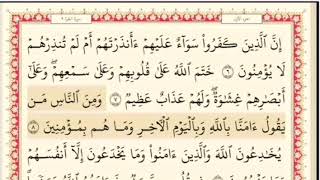 إِنَّ ٱلَّذِينَ كَفَرُوا۟ سَوَآءٌ عَلَيْهِمْ ءَأَنذَرْتَهُمْ أَمْ لَمْ تُنذِرْهُمْ
لَا يُؤْمِنُونَ ٦ خَتَمَ ٱللَّهُ عَلَىٰ قُلُوبِهِمْ وَعَلَىٰ سَمْعِهِمْ ۖ وَعَلَىٰٓ
أَبْصَٰرِهِمْ غِشَٰوَةٌ ۖ وَلَهُمْ عَذَابٌ عَظِيمٌ ٧ وَمِنَ ٱلنَّاسِ مَن
يَقُولُ ءَامَنَّا بِٱللَّهِ وَبِٱلْيَوْمِ ٱلْـَٔاخِرِ وَمَا هُم بِمُؤْمِنِينَ ٨
يُخَٰدِعُونَ ٱللَّهَ وَٱلَّذِينَ ءَامَنُوا۟ وَمَا يَخْدَعُونَ إِلَّآ أَنفُسَهُمْ